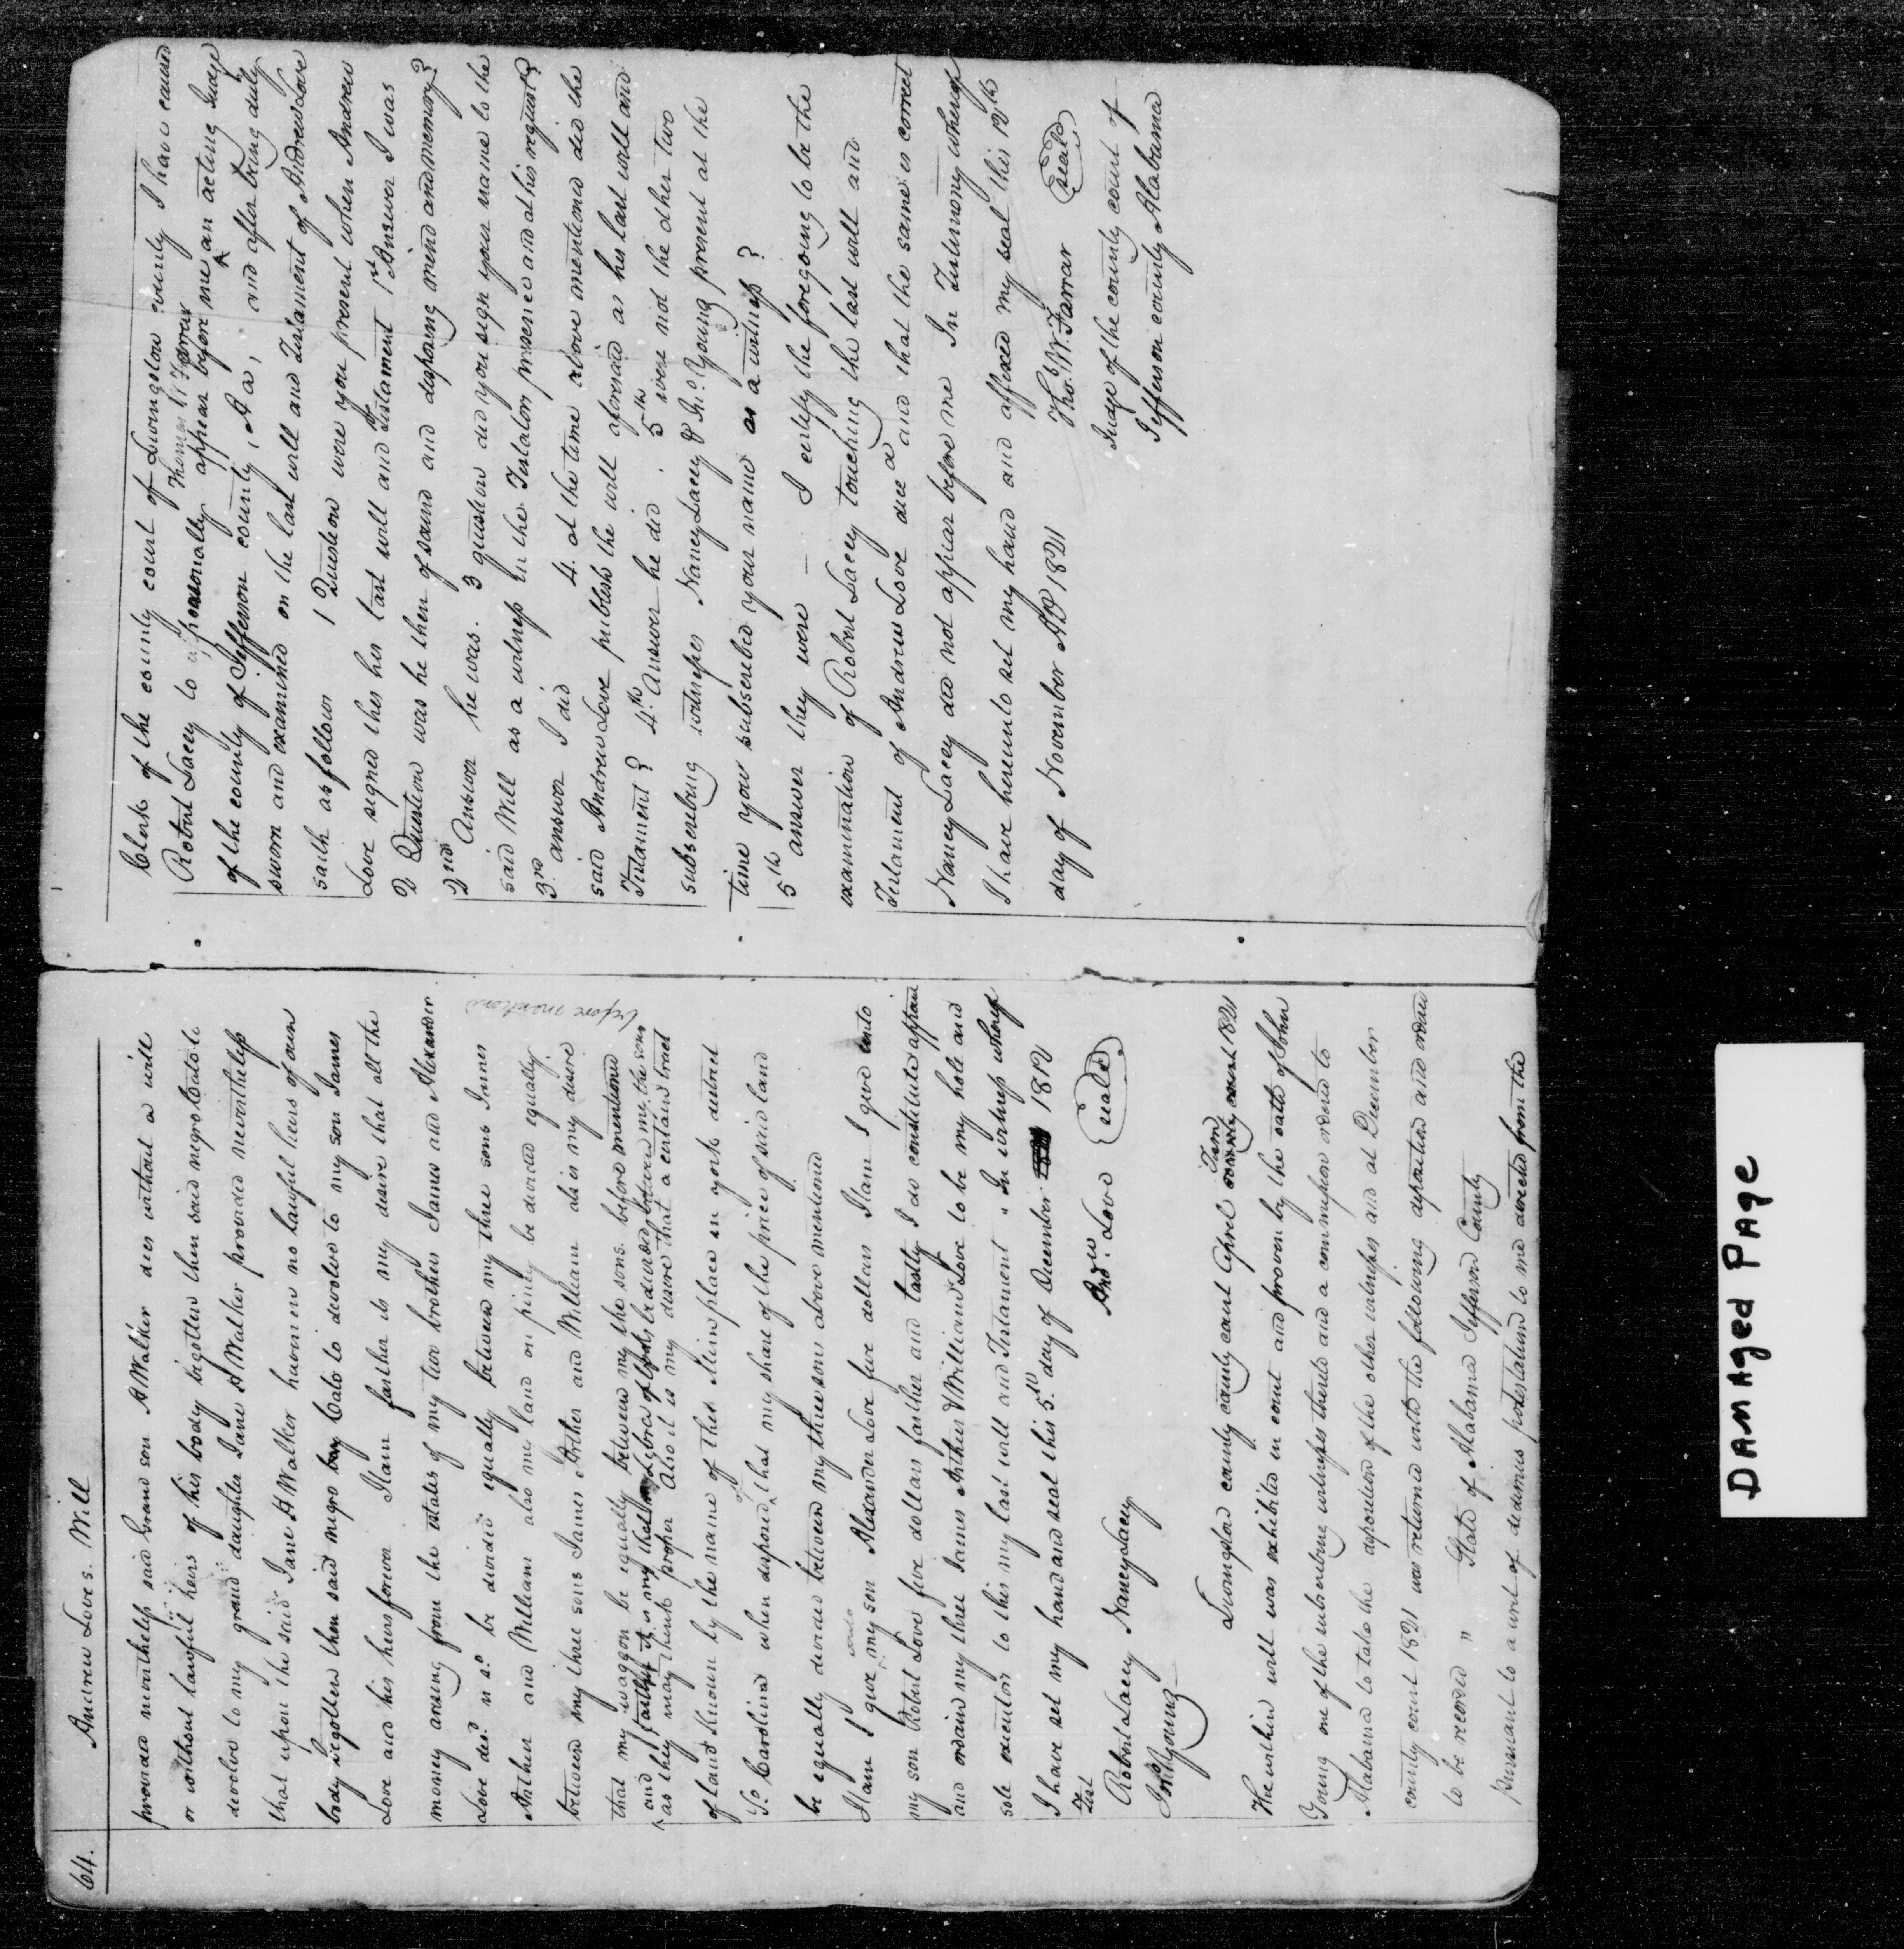 64. Andrew Love s. Will
provided nevertheless said Grand son A Walker dies without a will
or without lawful heirs of his body begotten then said negro Cato to
devolve to my grand daughter Jane A Walker provided nevertheless
that upon the said Jane A Walker having no lawful heirs of own
body begotten then said negro boy Cato to devolve to my son James
Love and his heirs forever Item farther its my desire that all the
money arising from the estates of my two brothers James and Alexander
Love decd. be divided equally between my three sons James
Arther and William also my land on piney be devided equally
between my three sons James Arther and William also is my desire
that my waggon be equally between my the sons. before mentioned
and farther is my that my be devided between my the sons before mentiond
as they may think proper Also it is my desire that a certain tract
of land known by the name of the place in york district
So Carolina when disposed of that my share of the price of said land
be equally devided between my three sons above mentioned
Item I give my son Alexander Love five dollars Item I give unto
my son Robert Love five dollars farther and lastly I do constitute appoint
and ordain my three James Arther & William Love to be my hole and
sole executors to this my last will and Testament " In witness whereof
I have set my hand and seal this 5th day of December 1812
Test Andw. Love (seal)
Robert Lacey Nancy Lacey
Jno. Young
Livingston county county court Aprel Term 1821
The within will was exhibited in court and proven by the oath of John
Young one of the subscribing witnesses thereto and a commission ordered to
Alabama to take the deposition of the other witnesses and at December
county court 1821 was returned with the following deposition and ordered
to be recorded " State of Alabama Jefferson County
pursuant to a writ of dedimus potestatum to me directed from the
Clerk of the county court of Livingston county I have caused
Robert Lacey to personally appear before me Thomas W Farrar an acting Judge
of the county of Jefferson county, Aa, and after being duly
sworn and examined on the last will and Testament of Andrew Love
saith as follows 1 Question were you present when Andrew
Love signed this his last will and testament 1st Answer I was
2 Question was he then of sound and disposing mind and memory?
2nd Answer he was. 3 question did you sign your name to the
said Will as a witness in the Testators presence and at his request?
3rd. answer I did 4. at the time above mentioned did the
said Andrew Love publish the will aforesaid as his last will and
Testament? 4.th Answer he did. 5th were not the other two
subscribing witnesses Nancy Lacey & Jno. Young present at the
time you subscribed your name as a witness?
5th answer they were — I certify the foregoing to be the
examination of Robert Lacey touching the last will and
Testament of Andrew Love decd and that the same is correct
Nancy Lacey did not appear before me In Testimony whereof
I have hereunto set my hand and affixed my seal this 12th
day of November AD 1821 Tho. W. Farrar (seal)
Judge of the county court of
Jefferson county Alabama
DAMAged PAge